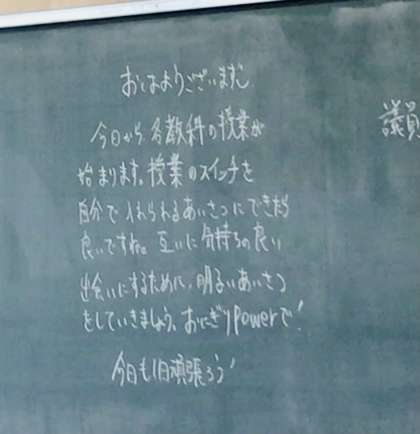 おはようございます。
今日から各教科の授業が
始まります。授業のスイッチを
自分で入れられるあいさつにできたら
良いですね。互いに気持ちの良い
出会いにするために、明るいあいさつ
をしていきましょう。おにぎりpowerで!
今日も1日頑張ろう!
議員